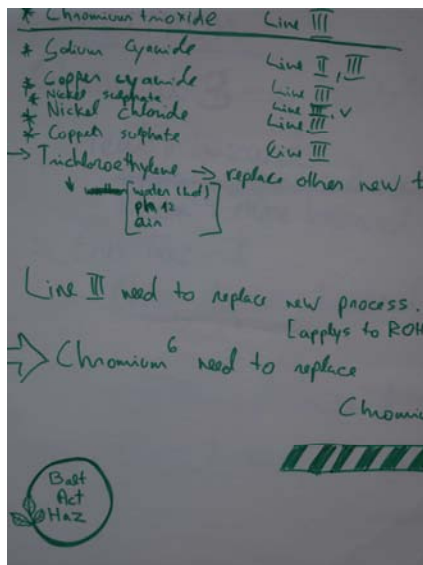 * Chromium trioxide Line III
* Sodium Cyanide Line II, III
* Copper cyanide Line III
* Nickel sulphate Line III, V
* Nickel Chloride Line III
* Copper sulphate Line III
→ Trichloroethylene → replace other new t
[water (hot)
ph 12
air]
Line III need to replace new process.
[applys to ROH
⇒ Chromium 6 need to replace
Chromiu
Balt
Act
Haz